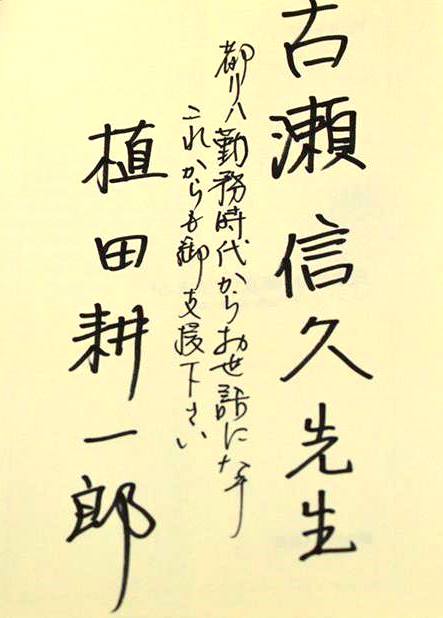 古瀬信久先生
都リハ勤務時代からお世話になり
これからも御支援下さい
植田耕一郎